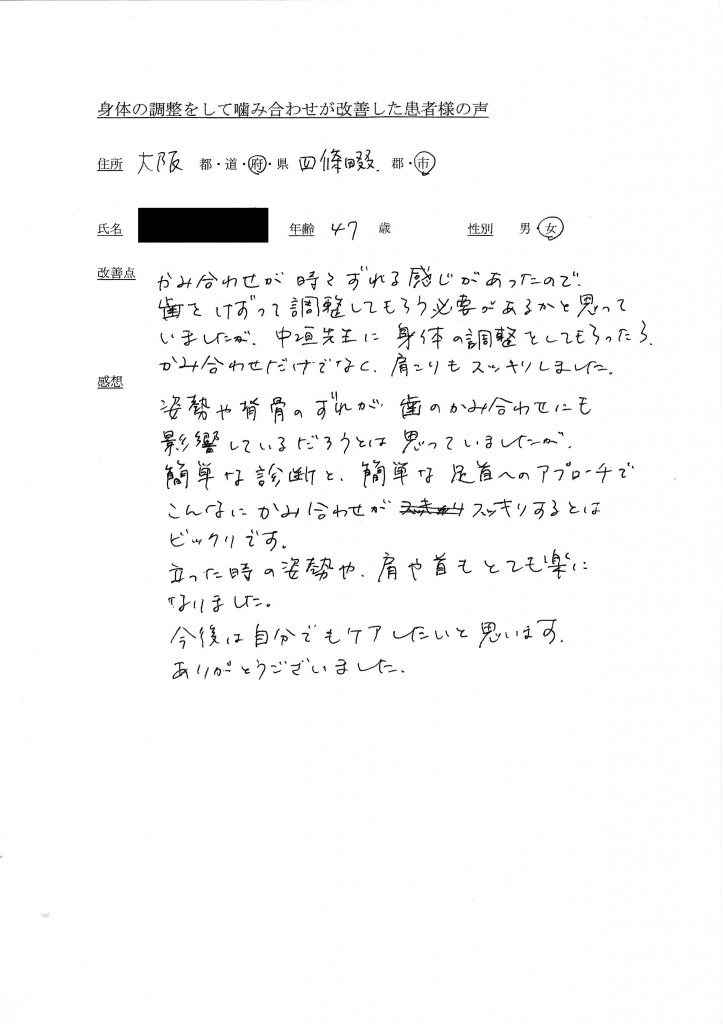 身体の調整をして噛み合わせが改善した患者様の声
住所 大阪 都・道・府・県 四條畷 郡・市
氏名 年齢 47 歳 性別 男・女
改善点 かみ合わせが時々ずれる感じがあったので、
歯をけずって調整してもらう必要があるかと思って
いましたが、中垣先生に身体の調整をしてもらったら、
かみ合わせだけでなく、肩こりもスッキリしました。
感想
姿勢や背骨のずれが歯のかみ合わせにも
影響しているだろうとは思っていましたが、
簡単な診断と、簡単な足首へのアプローチで
こんなにかみ合わせがスッキリするとは
ビックリです。
立った時の姿勢や、肩や首もとても楽に
なりました。
今後は自分でもケアしたいと思います。
ありがとうございました。